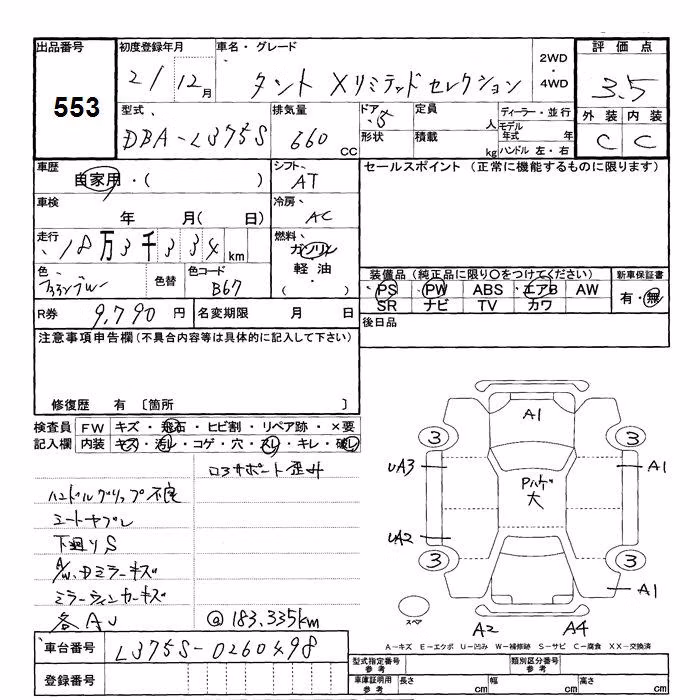 出品番号
553
初度登録年月
2/12月
車名・グレード
タント Xリミテッドセレクション
2WD
・
4WD
評価点
3.5
外装 内装
C C
型式
DBA-L375S
排気量
660 CC
ドア 5
形状
定員 人
積載 kg
ディーラー・並行
モデル年式 年
ハンドル 左・右
車歴
自家用・( )
シフト
AT
セールスポイント（正常に機能するものに限ります）
車検
年 月( 日)
冷房
AC
走行
18万3千334km
燃料
ガソリン
軽油
( )
色
色替
色コード
B67
装備品（純正品に限り○をつけてください）
PS PW ABS エアB AW
SR ナビ TV カワ
新車保証書
有・無
R券 9,790円
名変期限 月 日
後日品
注意事項申告欄（不具合内容等は具体的に記入して下さい）
修復歴 有 〔箇所 〕
検査員記入欄
FW キズ・飛石・ヒビ割・リペア跡・×要
内装 キズ・汚レ・コゲ・穴・スレ・キレ・破レ
コアサポート歪み
ハンドルグリップ不良
シートヤブレ
下廻りS
A/W、Dミラーキズ
ミラーウィンカーキズ
各AU
@183,335km
A1
3 3
UA3 A1
Pハゲ
大
UA2
3 3
A1
スペア
A2 A4
A－キズ E－エクボ U－凹み W－補修跡 S－サビ C－腐食 XX－交換済
車台番号 L375S-0260498
登録番号
型式指定番号
参考
類別区分番号
参考
車庫証明用
参考
長さ cm
幅 cm
高さ cm